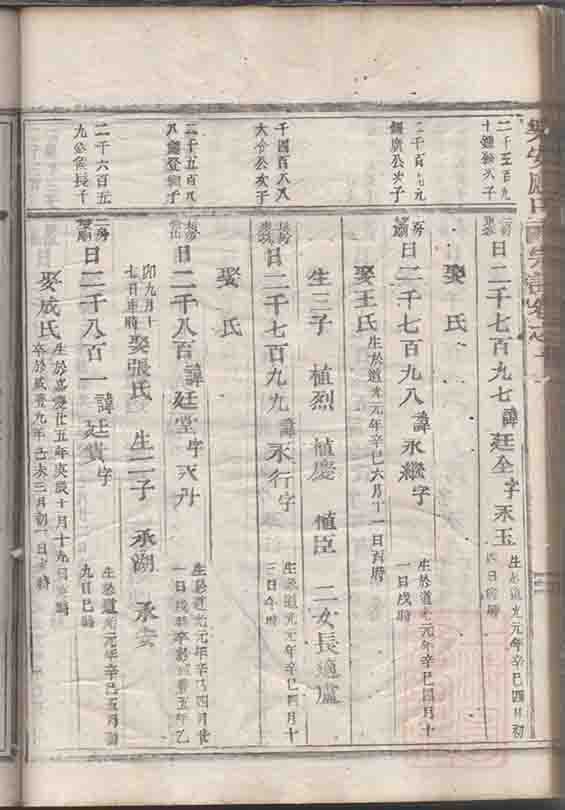 二千五百九
十 次子
二房
日二千七百九七諱廷全字永玉
生於道光元年辛巳四月初
四日 時
娶 氏
二千百七九
廣公次子
二房
日二千七百九八諱永繼字
生於道光元年辛巳四月十
一日戌時
娶王氏
生於道光元年辛巳六月十一日酉時
生三子 植烈 植慶 植臣 二女長適盧
千四百八八
公次子
長房
日二千七百九九諱永行字
生於道光元年辛巳四月十
三日午時
娶 氏
二千五百八
八 登 子
二房
日二千八百諱廷堂字天升
生於道光元年辛巳四月廿
一日戌時卒於 五年乙
卯九月十
七日 時
娶張氏 生二子 承湖 承安
二千六百五
九 長子
二房
日二千八百一諱廷貴字
生於道光元年辛巳五月初
九日巳時
娶成氏
生於嘉慶廿五年庚辰十月十九日 時
卒於咸豐九年己未三月初一日 時